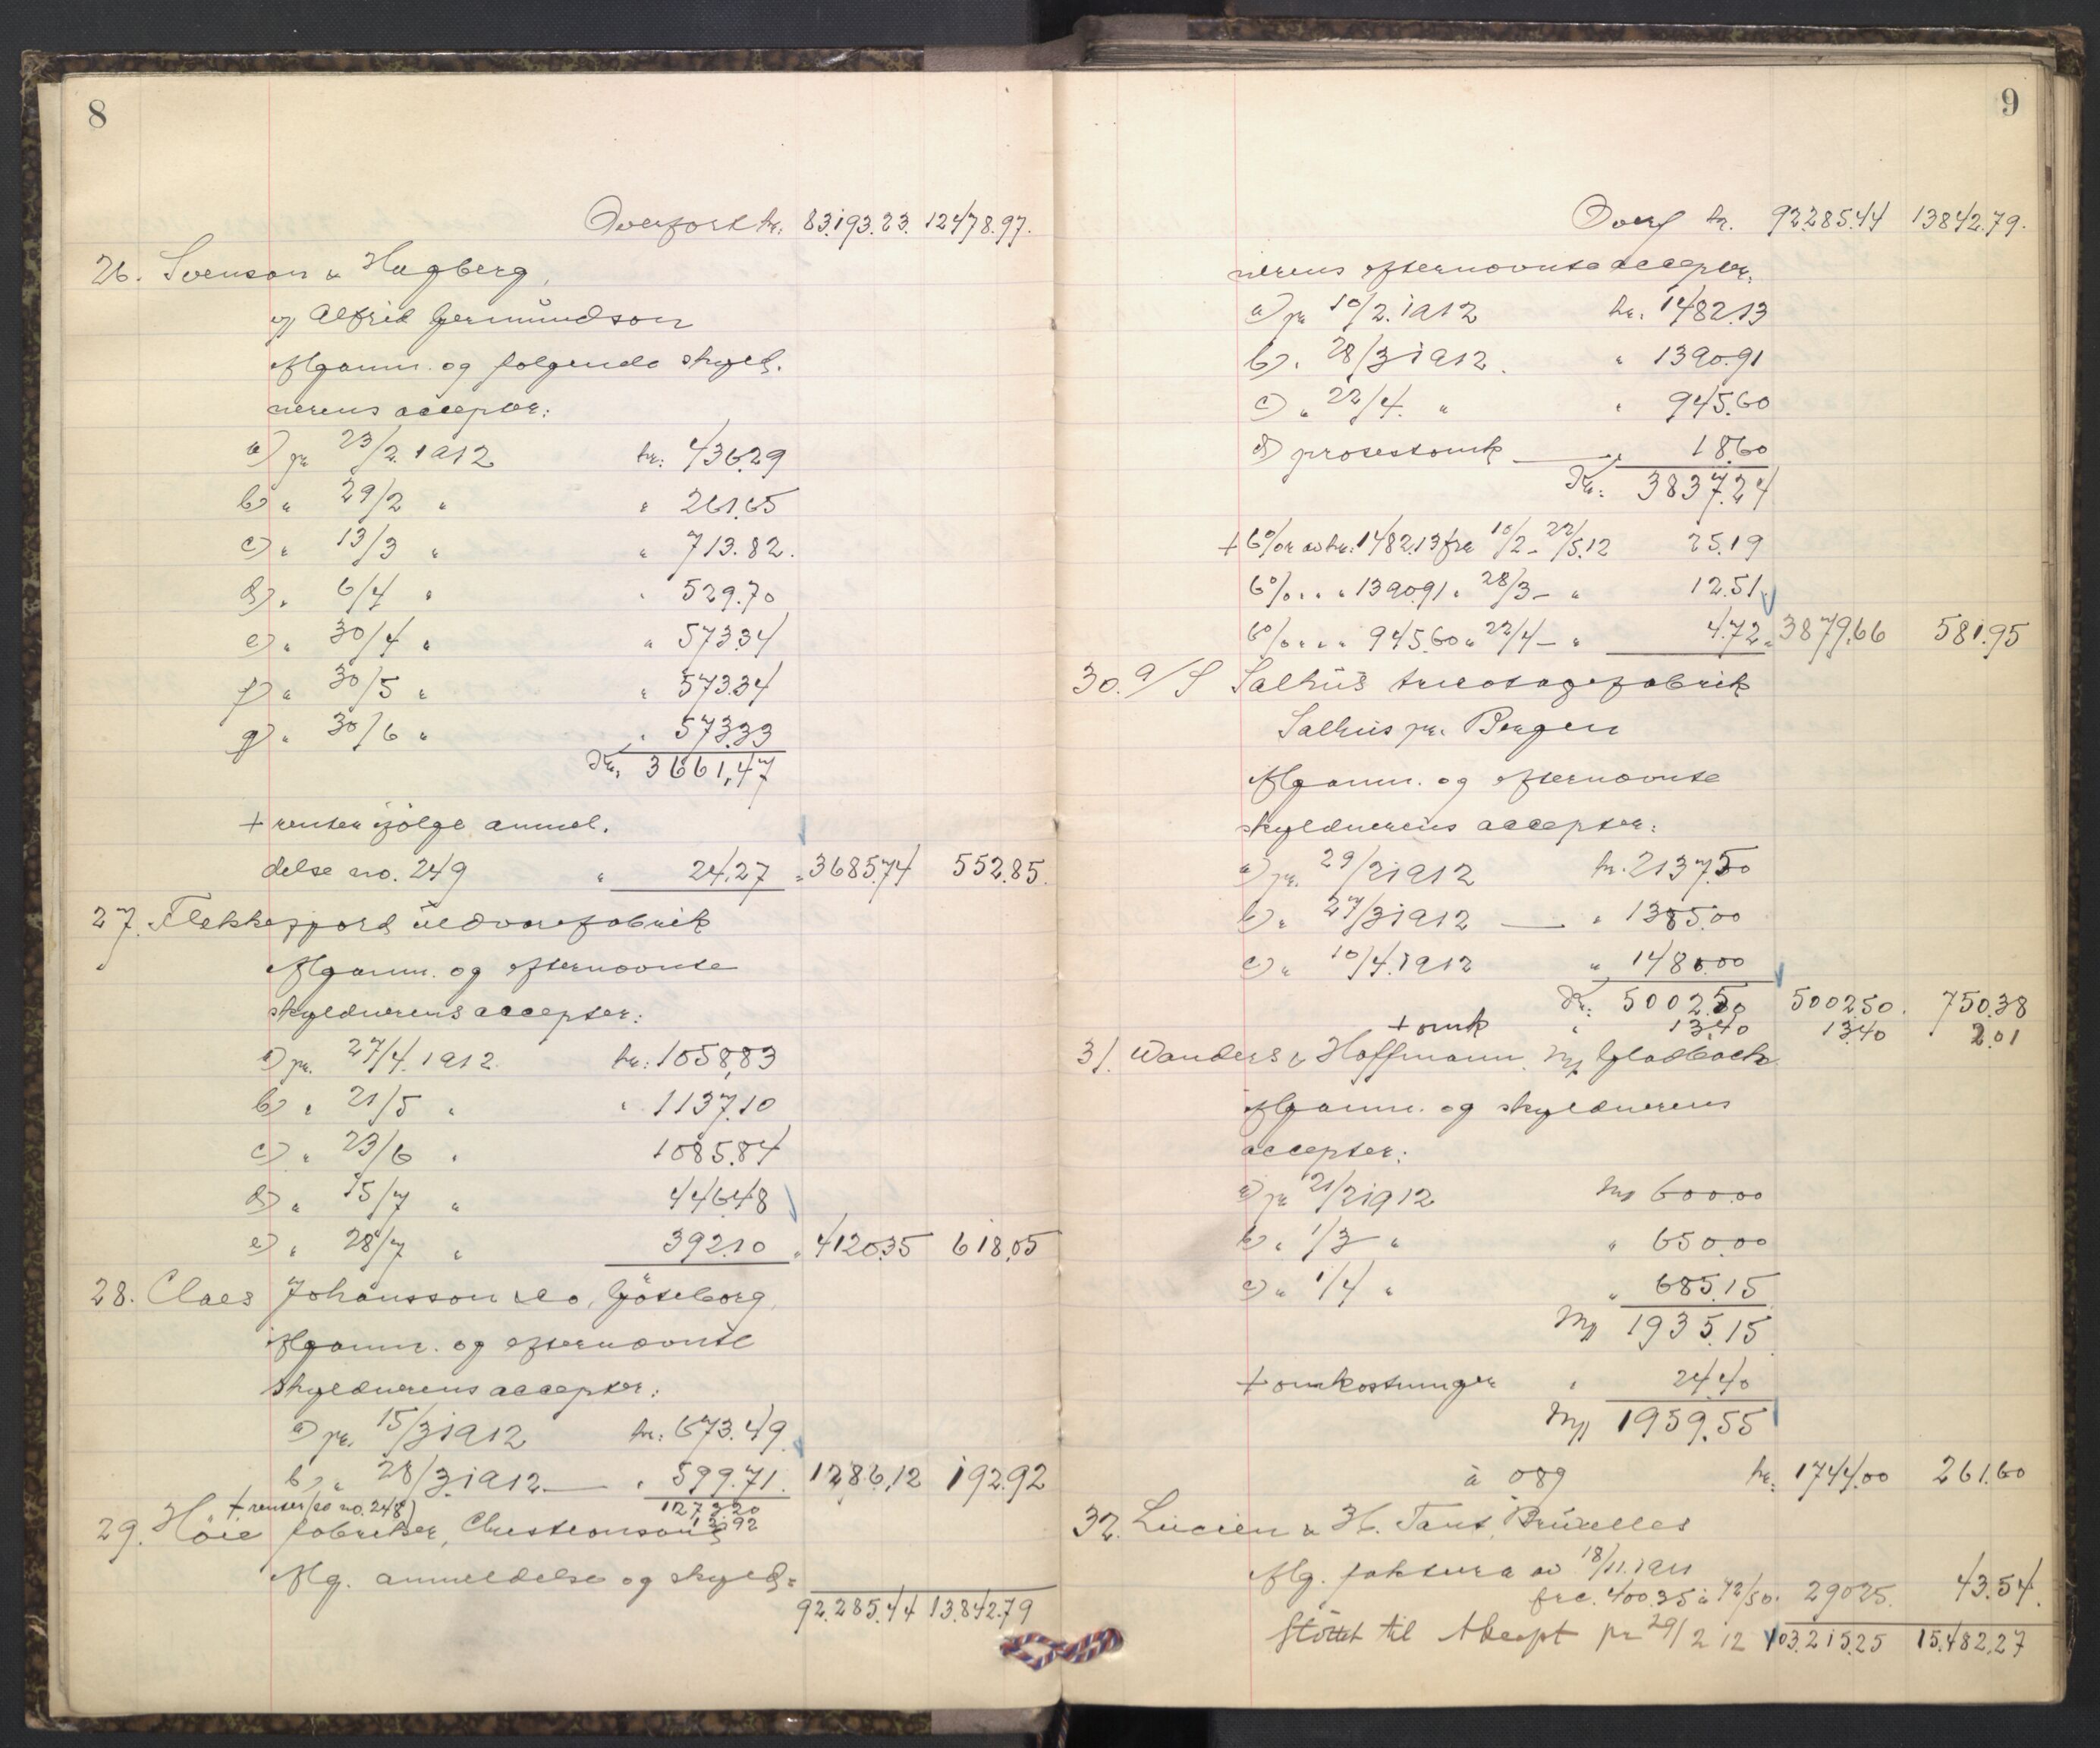 8
Overført kr. 83.193.23. 12478.97.
26. Svenson & Hagberg,
v/ Alfrid Germundson
Ifl. anm. og følgende skyld-
nerens accepter:
a) pr 23/2. 1912 kr: 436.29
b) " 29/2 " " 261.65
c) " 13/3 " " 713.82.
d) " 6/4 " " 529.70
e) " 30/4 " " 573.34
f) " 30/5 " " 573.34
g) " 30/6 " " 573.33
Kr. 3661,47
+ renter ifølge anmel.
delse no. 249 " 24.27 " 3685.74 552.85.
27. Flekkefjord uldvarefabrik
Ifl. anm. og efternævnte
skyldnerens accepter:
a) pr. 27/4. 1912. kr: 1058,83
b) " 21/5 " " 1137.10
c) " 23/6 " 1085.84
d) " 15/7 " 446.48
e) " 28/7 " 392.10 " 4120.35 618,05
28. Claes Johansson & Co, Göteborg,
Ifl. anm. og efternævnte
skyldnerens accepter:
a) pr. 15/3 1912 kr: 673.49
b) " 28/3. 1912 — " 599.71. 1286,12 192.92
+ renter (se no. 248) 1273.20
12.92
29. Høie fabriker, Christianssand
Ifg. anmeldelse og skyld-
92.285.44 13.842.79
9
Overf kr. 92285.44 13842.79.
nerens efternævnte accepter:
a) pr 10/2. 1912 kr. 1482.13
b) " 28/3 1912. " 1390.91
c) " 22/4. " " 945.60
d) protestomk — " 18.60
Kr: 3837.24
+ 6% av kr: 1482.13 fra 10/2 - 22/5.12 25.19
6% " " " 1390.91 " 28/3 - " 12.51
6% " " " 945.60 " 22/4 - " 4.72 " 3879.66 581.95
30. A/S Salhus tricotagefabrik
Salhus pr. Bergen
Ifl. anm. og efternævnte
skyldnerens accepter:
a) pr. 29/2 1912 kr. 2137.50
b) " 27/3 1912 — " 1385.00
c) " 10/4. 1912 " 1480.00
Kr: 5002.50 5002.50. 750.38
+ omk " 13.40 13.40 2.01
31. Wanders & Hoffmann, M/ Gladbach
Ifl. anm. og skyldnerens
accepter:
a) pr 21/2 1912 Mk 600.00
b) " 1/3 " " 650.00
c) " 1/4 " " 685.15
Mk 1935.15
+ omkostninger " 24.40
Mk 1959.55
à 089 kr. 1744.00 261.60
32. Lucien & H. Tant, Bruxelles
Ifg. faktura av 18/11. 1911
frc. 400.35 à 72/50. 290.25. 43.54.
Støttet til Akcept pr 29/2 12 103.215.25 15.482.27